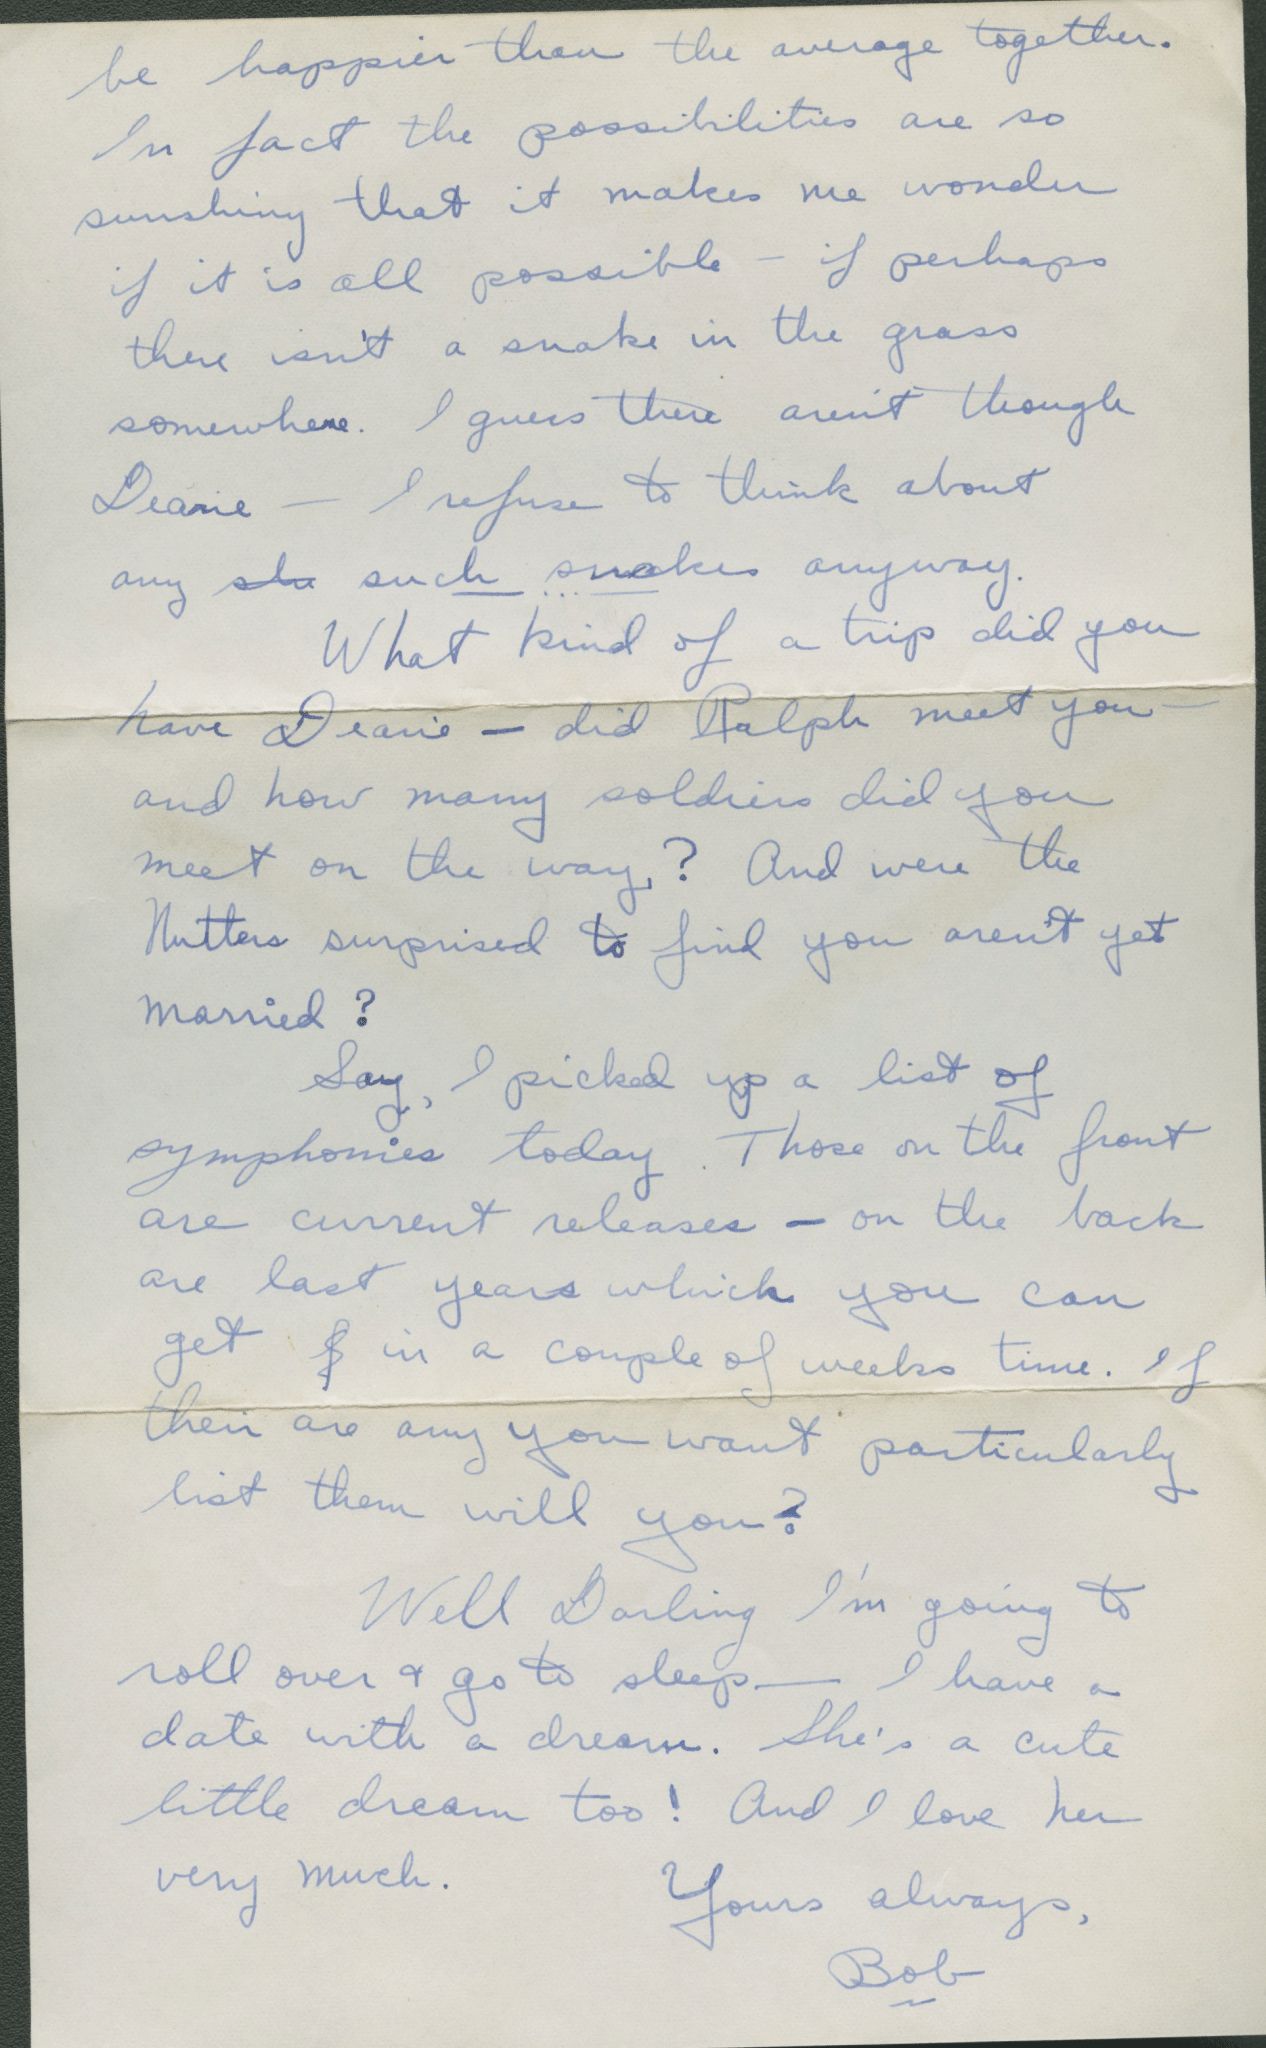 be happier than the average together.
In fact the possibilities are so
sunshiny that it makes me wonder
if it is all possible - if perhaps
there isn't a snake in the grass
somewhere. I guess there aren't though
Dearie — I refuse to think about
any sha such snakes anyway.
What kind of a trip did you
have Dearie — did Ralph meet you —
and how many soldiers did you
meet on the way,? And were the
Nutters surprised to find you aren't yet
married?
Say, I picked up a list of
symphonies today. Those on the front
are current releases — on the back
are last years which you can
get in a couple of weeks time. If
their are any you want particularly
list them will you?
Well Darling I'm going to
roll over & go to sleep — I have a
date with a dream. She's a cute
little dream too! And I love her
very much.
Yours always,
Bob